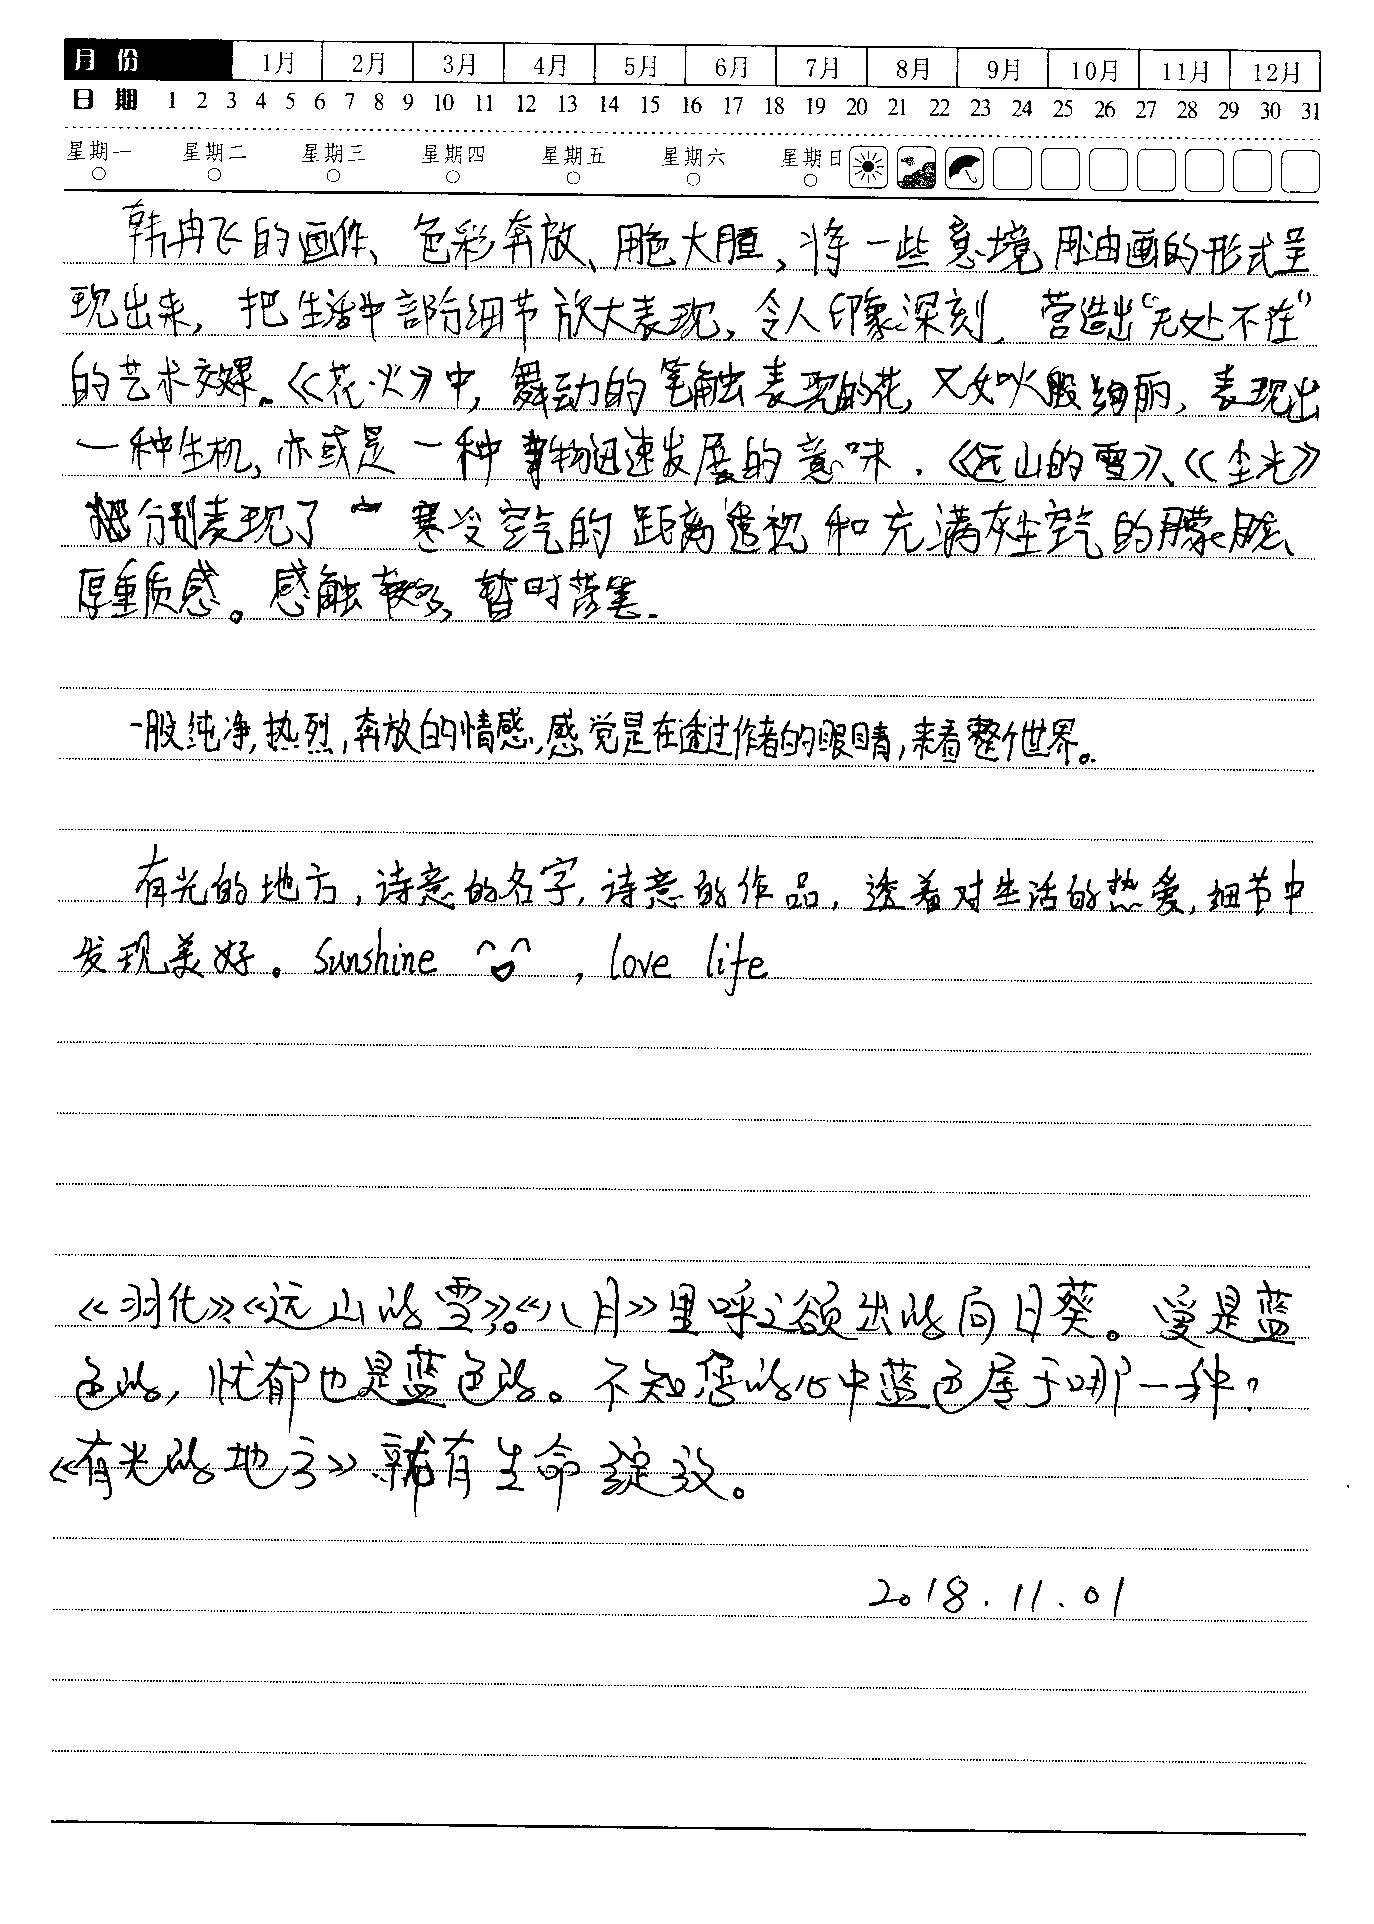 月份 1月 2月 3月 4月 5月 6月 7月 8月 9月 10月 11月 12月
日期 1 2 3 4 5 6 7 8 9 10 11 12 13 14 15 16 17 18 19 20 21 22 23 24 25 26 27 28 29 30 31
星期一 星期二 星期三 星期四 星期五 星期六 星期日
韩冉飞的画作、色彩奔放、用色大胆,将一些意境用油画的形式呈
现出来,把生活中部分细节放大表现,令人印象深刻,营造出“无处不在”
的艺术效果。《花·火》中,舞动的笔触表现的花,又如火般绚丽,表现出
一种生机,亦或是一种事物迅速发展的意味.《远山的雪》、《尘光》
分别表现了寒冷空气的距离透视和充满灰尘空气的朦胧、
厚重质感。感触较多,暂时落笔.
一股纯净,热烈,奔放的情感,感觉是在透过作者的眼睛,来看整个世界。
有光的地方,诗意的名字,诗意的作品,透着对生活的热爱,细节中
发现美好。Sunshine ,love life
《羽化》《远山的雪》。《八月》里呼之欲出的向日葵。爱是蓝
色的,忧郁也是蓝色的。不知您的心中蓝色属于哪一种?
《有光的地方》就有生命绽放。
2018.11.01